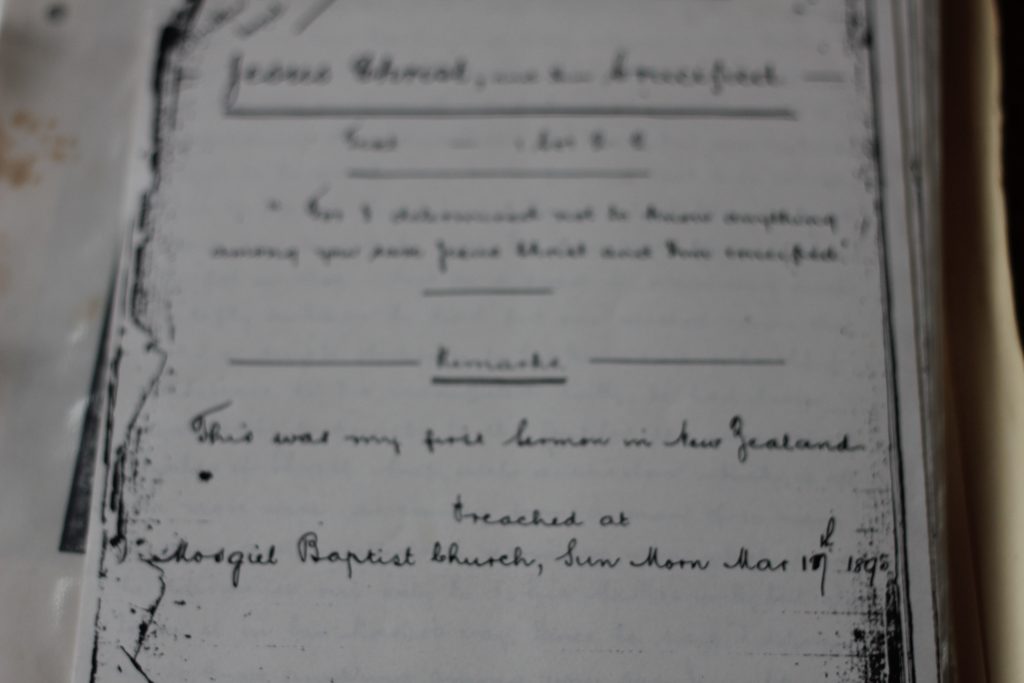 Jesus Christ, and Him Crucified
Text — 1 Cor 2. 2
" For I determined not to know anything
among you save Jesus Christ and Him crucified."
Remarks
This was my first Sermon in New Zealand
Preached at
Mosgiel Baptist Church, Sun Morn Mar